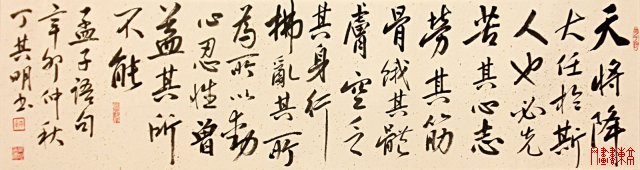 天將降
大任於斯
人也必先
苦其心志
勞其筋
骨餓其體
膚空乏
其身行
拂亂其所
為所以動
心忍性曾
益其所
不能
孟子語句
辛卯仲秋
丁其明書